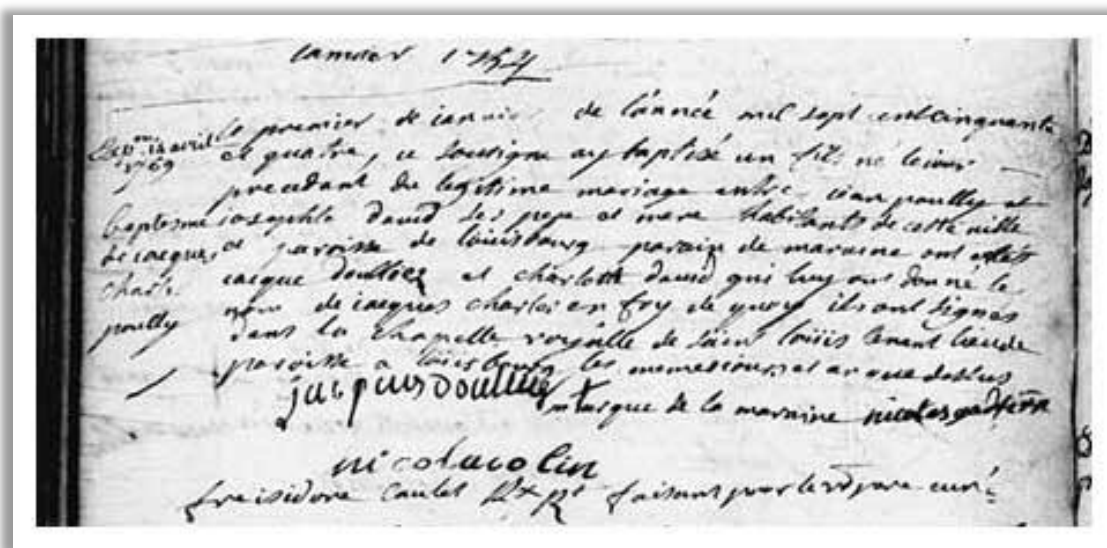 ianvier 1754
le premier de ianvier de l'année mil sept cent cinquante
et quatre, ie soussigné ay baptisé un fils né le iour
precedant du legitime mariage entre iean poully et
iosephte david ses pere et mere habitants de cette ville
et paroisse de louisbourg parain et maraine ont estés
iacque doullies et charlotte david qui luy ont donné le
nom de iacques charles en foy de quoy ils ont signés
dans la chapelle royalle de saint loüis tenant lieu de
paroisse a loüisbourg les memes iours et an que dessus
14 avril
1769
baptesme
de iacques
charle
poully
jacquis doullies
marque de la maraine nicolas
nicolas colin
fre isidore caulet faisant pour le rd pere curé